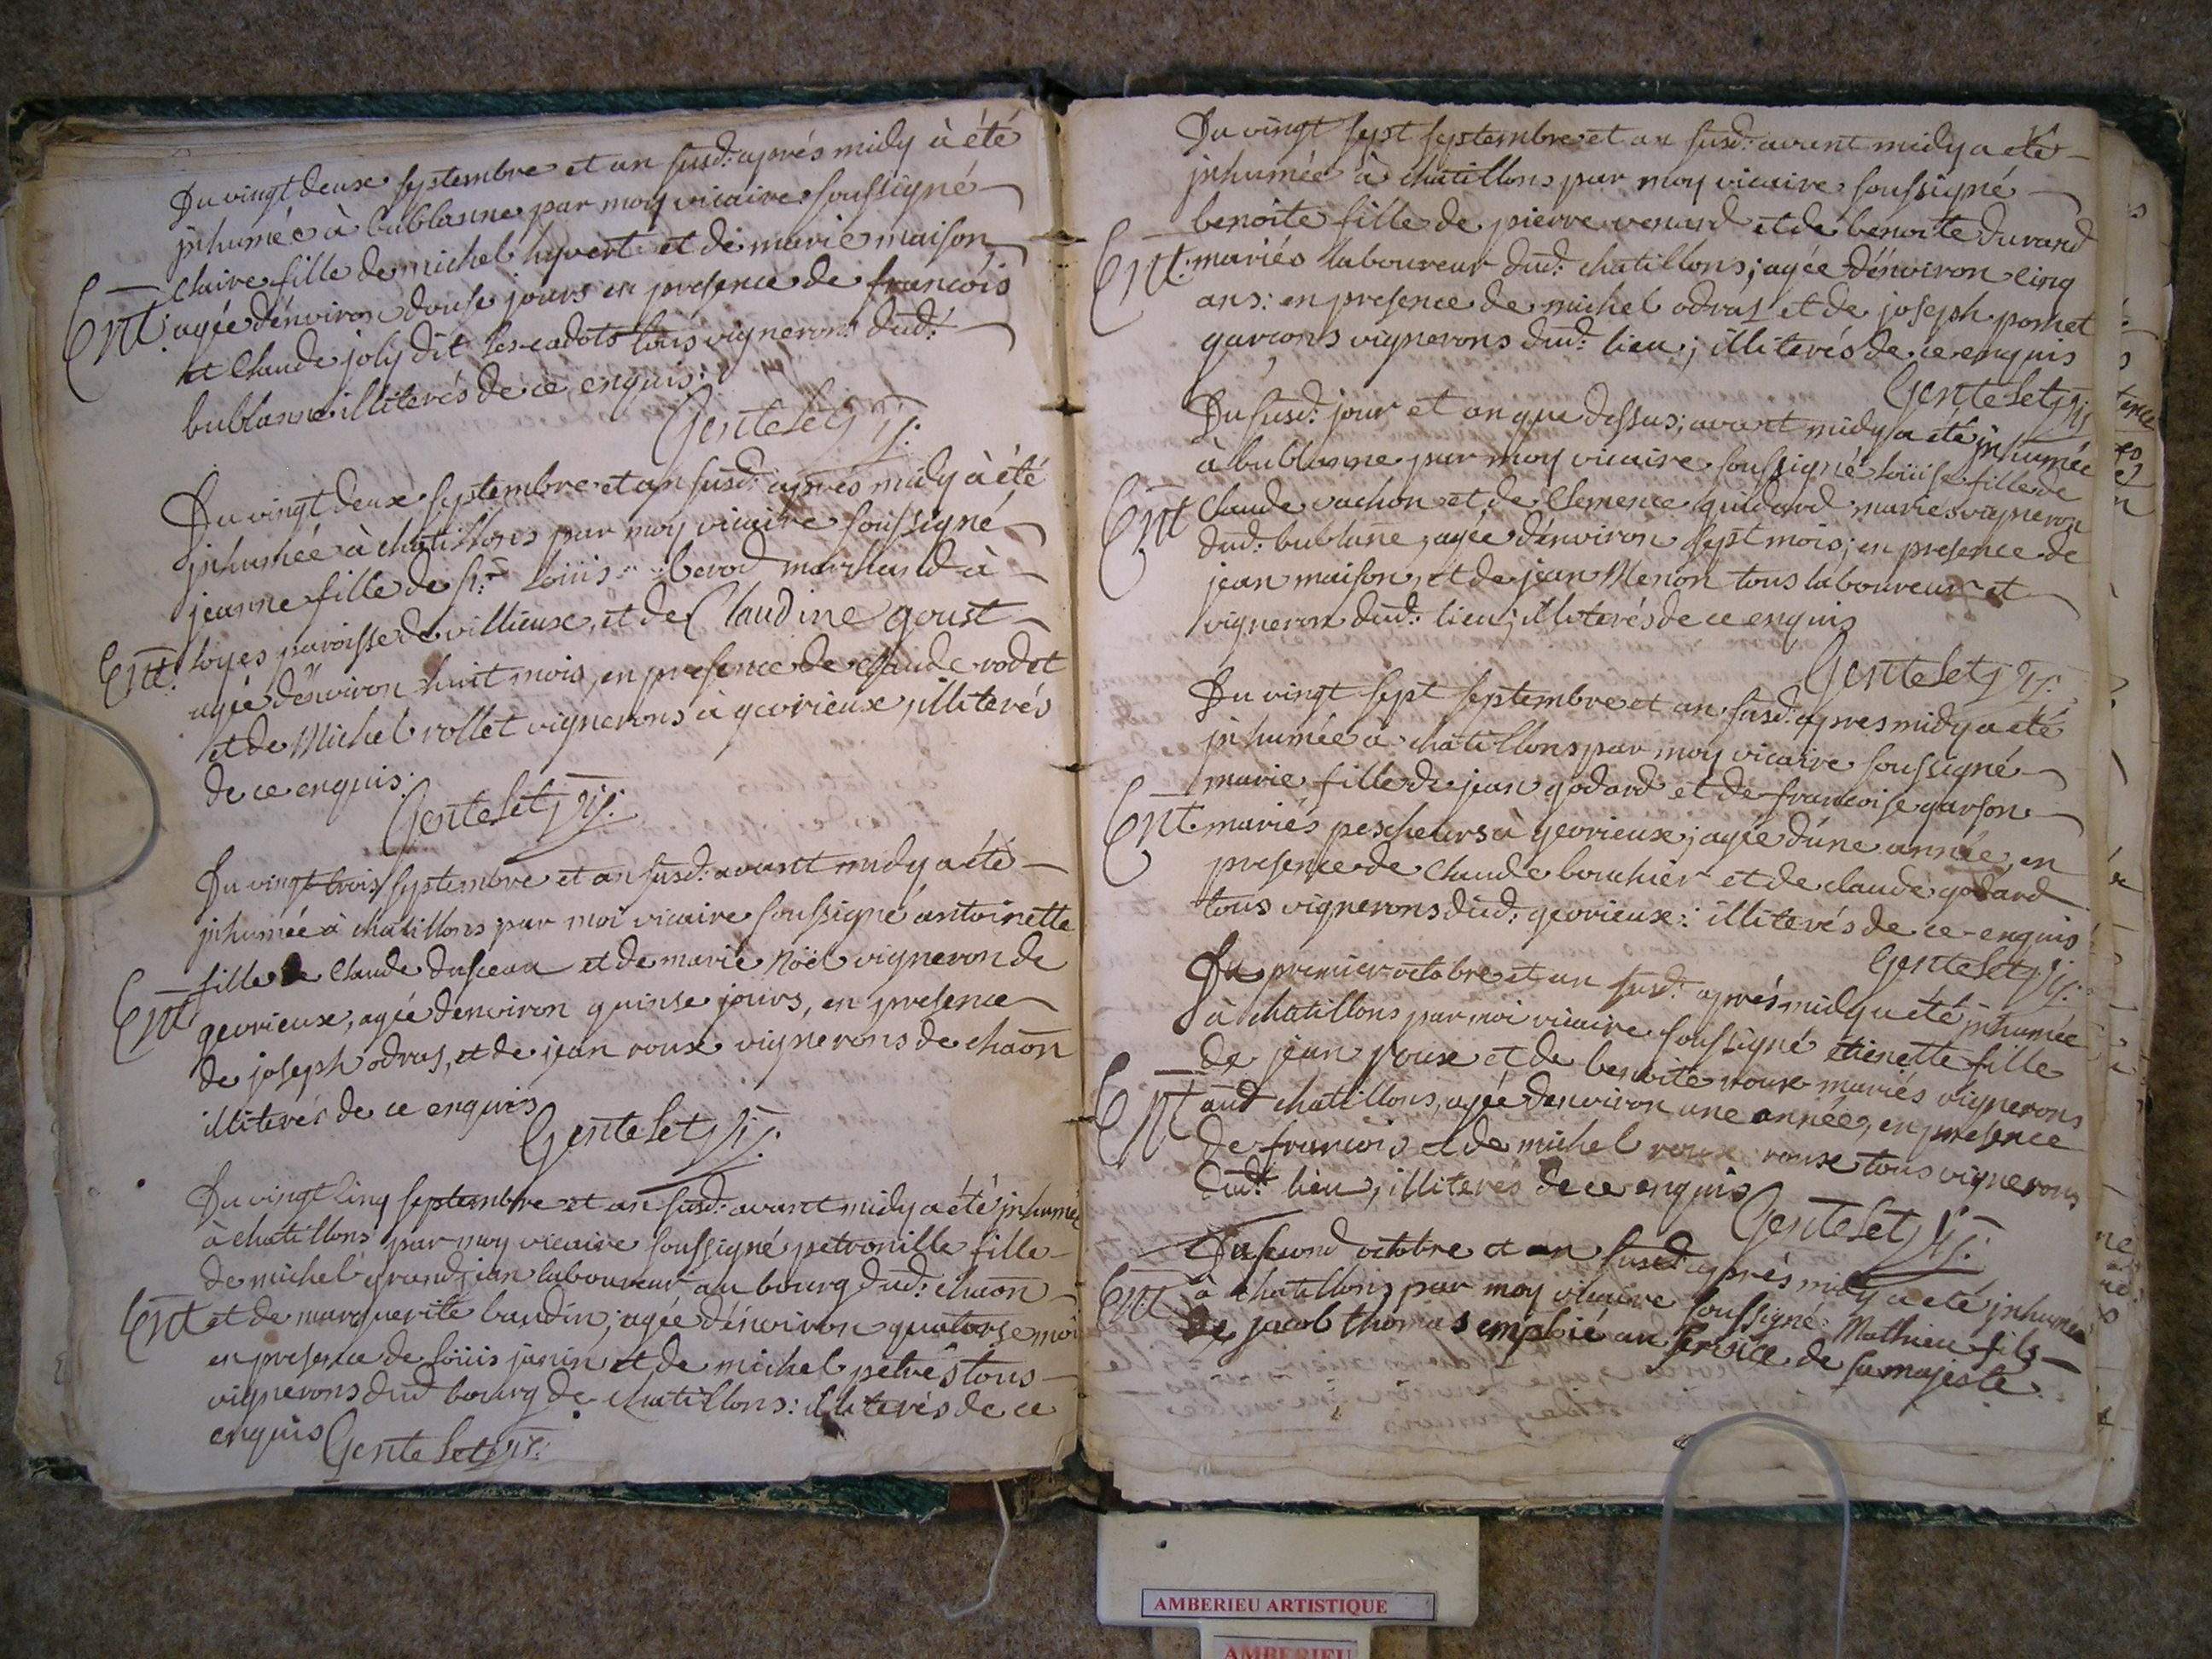 Du vingt deux septembre et an susd: aprés midy à été
jnhumée à bublanne par moy vicaire soussigné
Claire fille de michel hyvert et de marie maison
Ent: agée d'énviron douse jours en presence de francois
et Claude joly dit les cadots tous vignerons dud:
bublanne illiterés de ce enquis:
Gentelet vi:
Du vingt deux septembre et an susd: aprés midy à été
jnhumée à chatillons par moy vicaire soussigné
jeanne fille de sr. Loüis berod marchand à
Ent: loyes paroisse de villieux, et de Claudine goust
agée d'énviron huit mois, en presence de Claude rodet
et de Michel rollet vignerons à gevrieux jlliterés
de ce enquis.
Gentelet vi:
Du vingt trois septembre et an susd: avant midy a été
jnhumée à chatillons par moi vicaire soussigné antoinette
fille de Claude et de marie Noël vigneron de
Ent gevrieux, agée denviron quinse jours, en presence
de joseph odras, et de jean roux vignerons de chaõn
illiterés de ce enquis
Gentelet vi:
Du vingt cinq septembre et an susd: avant midy a été jnhumée
à chatillons par moy vicaire soussigné petronille fille
de michel grandjean laboureur au bourg dud: chaõn
Ent et de marguerite baudin; agée d'énviron quatorse mois
en presence de Loüis janin et de michel petrés tous
vignerons dud bourg de chatillons: illiterés de ce
enquis Gentelet vi:
Du vingt sept septembre et an susd: avant midy a été
jnhumée à chatillons par moy vicaire soussigné
benoite fille de pierre venard et de benoite durand
Ent: mariés laboureur dud: chatillons; agée d'énviron cinq
ans: en presence de michel odras et de joseph pomet
garcons vignerons dud: lieu; illiterés de ce enquis
Gentelet vi
Du susd: jour et an que dessus; avant midy a été jnhumée
à bublanne par moy vicaire soussigné loüise fille de
Ent Claude vachon et de Clemence guidard mariés vigneron
dud: bublane, agée d'énviron sept mois; en presence de
jean maison, et de jean Menon tous laboureur et
vigneron dud: lieu; illiterés de ce enquis
Gentelet vi:
Du vingt sept septembre et an susd: apres midy a été
jnhumée à chatillons par moy vicaire soussigné
marie fille de jean godard et de francoise garson
Ent: mariés pescheurs à gevrieux; agée d'une année, en
presence de Claude bouchier et de claude godard
tous vignerons dud: gevrieux: illiterés de ce enquis
Gentelet vi:
Du premier octobre et an susd: aprés midy a été jnhumée
à chatillons par moi vicaire soussigné etienette fille
de jean roux et de benoite roux mariés vignerons
Ent aud chatillons, agée denviron une année, en presence
de francois et de michel roux roux tous vignerons
dud: lieu, illiterés de ce enquis
Gentelet vi:
Du second octobre et an susd aprés midy a été jnhumé
Ent: à chatillons par moy vicaire soussigné: Mathieu fils
de jacob thomas emploié au service de sa majesté
AMBERIEU ARTISTIQUE
AMBERIEU